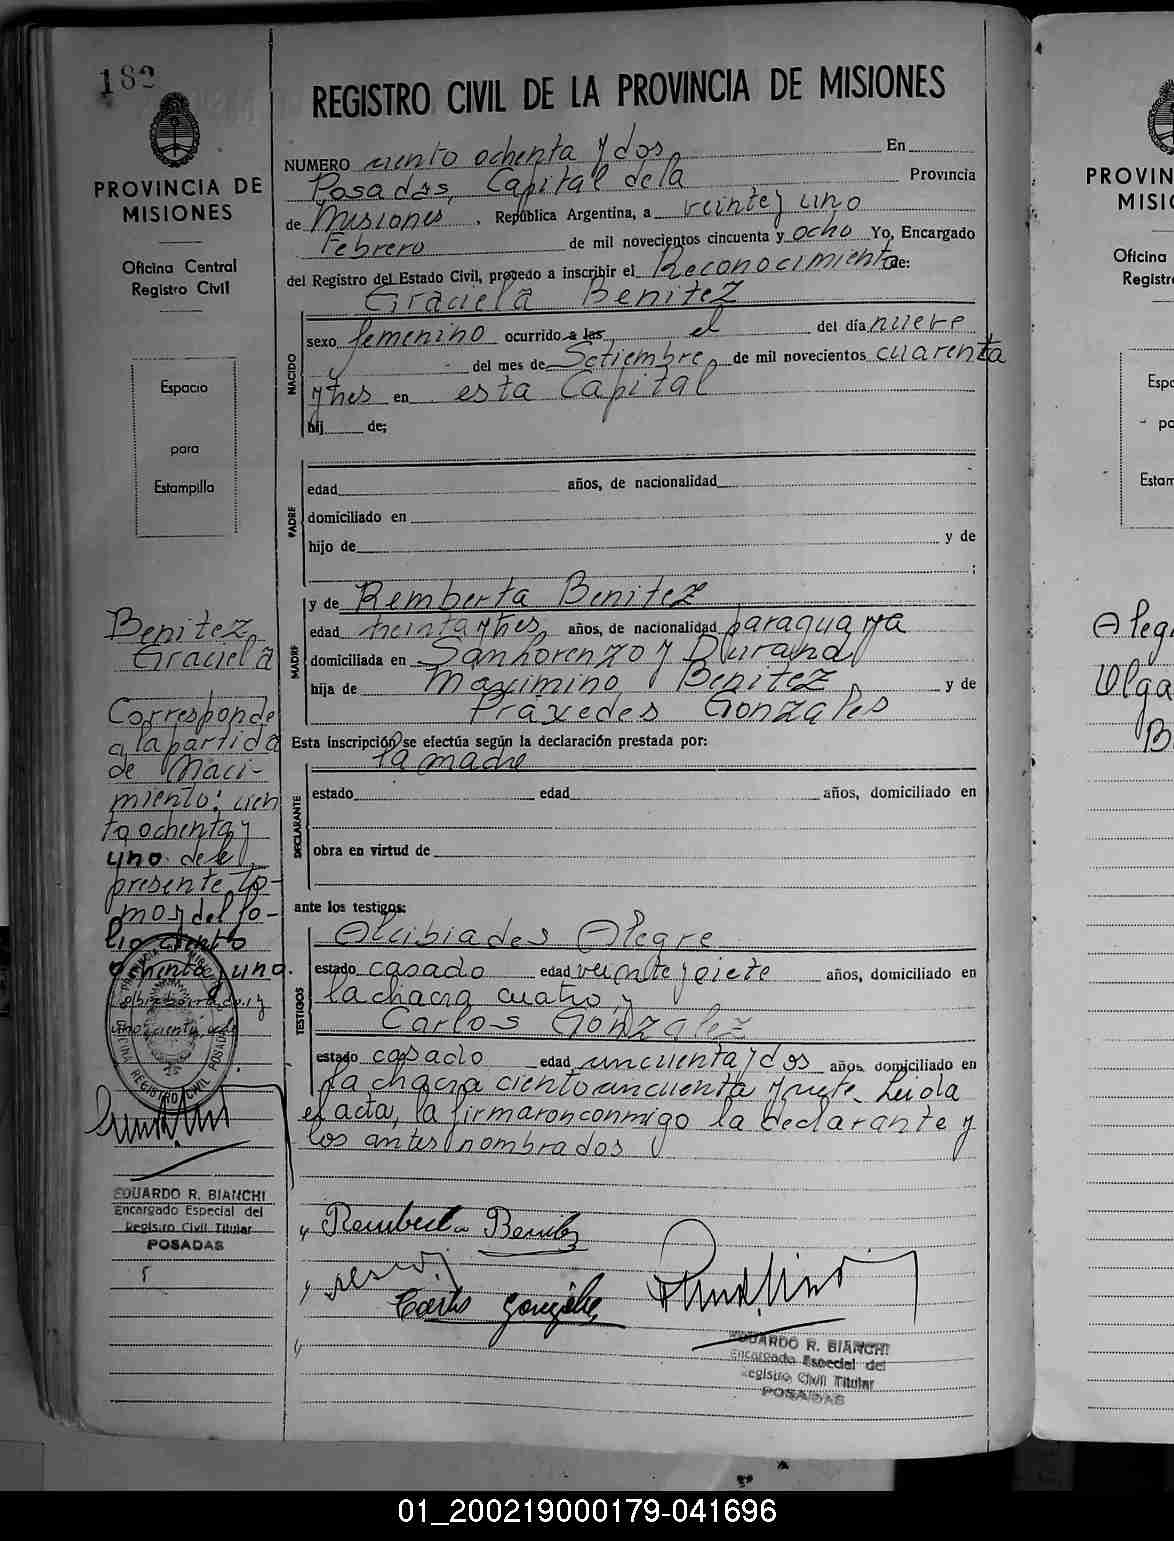 182
REGISTRO CIVIL DE LA PROVINCIA DE MISIONES
NUMERO ciento ochenta y dos En
Posadas, Capital de la Provincia
de Misiones, República Argentina, a veinte y uno
Febrero de mil novecientos cincuenta y ocho Yo, Encargado
del Registro del Estado Civil, procedo a inscribir el Reconocimiento de:
Graciela Benitez
NACIDO
sexo femenino ocurrido a las el del día nueve
y del mes de Setiembre de mil novecientos cuarenta
y tres en esta Capital
hij de;
PADRE
edad años, de nacionalidad
domiciliado en
hijo de y de
;
MADRE
y de Remberta Benitez
edad treinta y tres años, de nacionalidad paraguaya
domiciliada en San Lorenzo y Durand
hija de Maximino Benitez y de
Práxedes Gonzales
Esta inscripción se efectúa según la declaración prestada por:
la madre
DECLARANTE
estado edad años, domiciliado en
obra en virtud de
ante los testigos:
TESTIGOS
Alcibiades Alegre
estado casado edad veinte y siete años, domiciliado en
la chacra cuatro y
Carlos Gonzalez
estado casado edad cincuenta y dos años, domiciliado en
la chacra ciento cincuenta y siete. Leida
el acta, la firmaron conmigo la declarante y
los antes nombrados
Remberta Benitez
Carlos González
EDUARDO R. BIANCHI
Encargado Especial del
Registro Civil Titular
POSADAS
PROVINCIA DE
MISIONES
Oficina Central
Registro Civil
Espacio
para
Estampilla
Benitez
Graciela
Corresponde
a la partida
de Naci-
miento: cien
to ochenta y
uno de el
presente to-
mo y del fo-
lio ciento
ochenta y uno.
REGISTRO CIVIL POSADAS
EDUARDO R. BIANCHI
Encargado Especial del
Registro Civil Titular
POSADAS
PROVIN
MISIO
Oficina
Registr
Espa
pa
Estam
Alegr
Olga
B
01_200219000179-041696